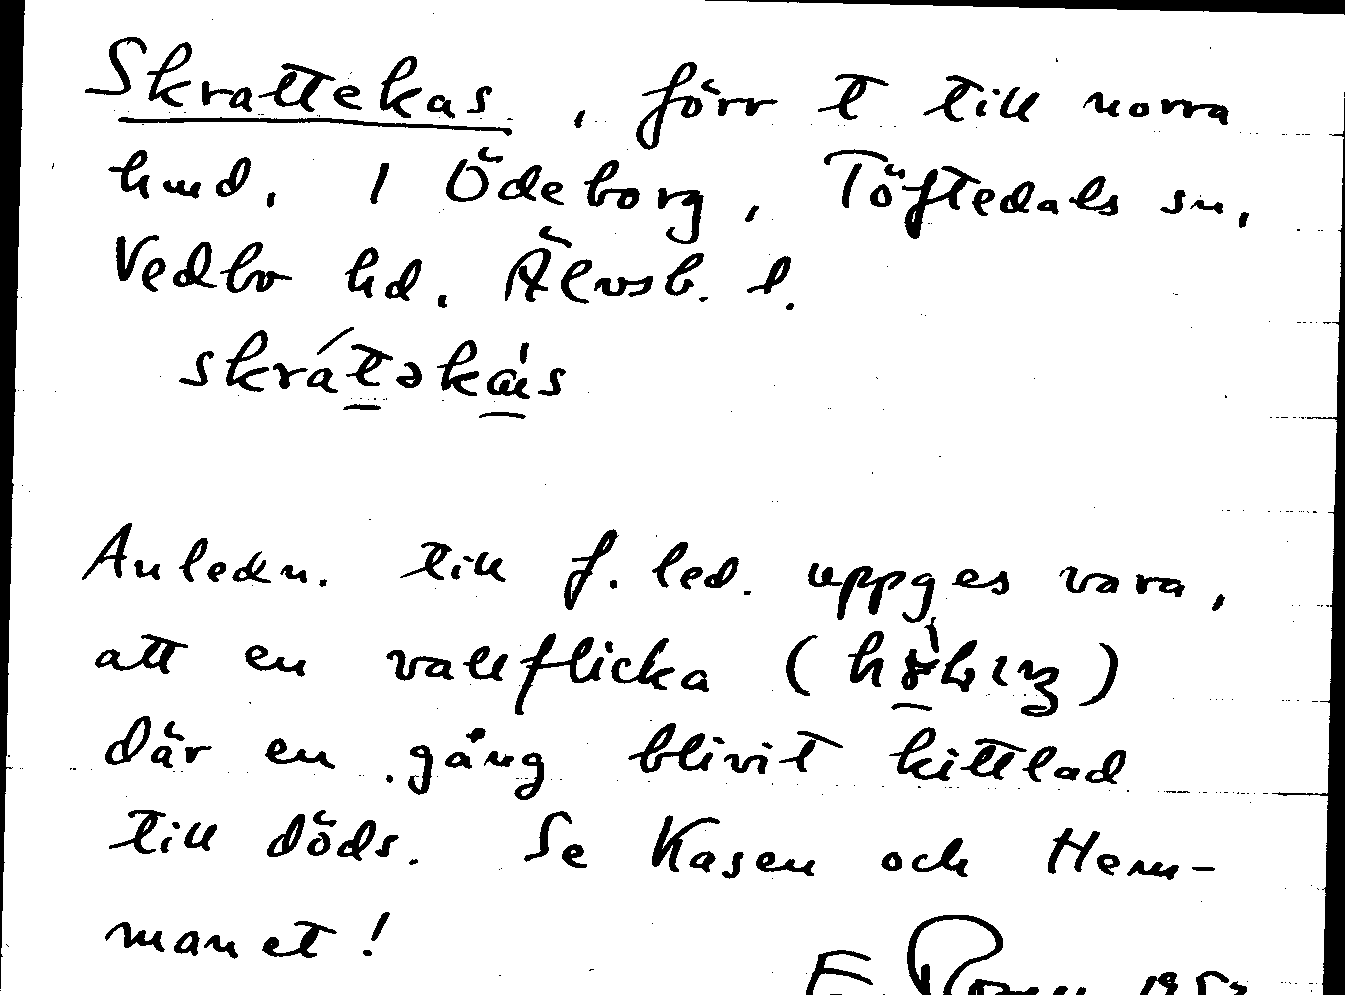 Skrattekas, förr t till norra
hmd. 1 Ödeborg, Töftedals sn,
Vedbo hd. Älvsb. l.
skrátəkàs
Anledn. till f. led. uppges vara,
att en vallflicka
där en gång blivit kittlad
till döds. Se Kasen och Hem-
manet!
E.